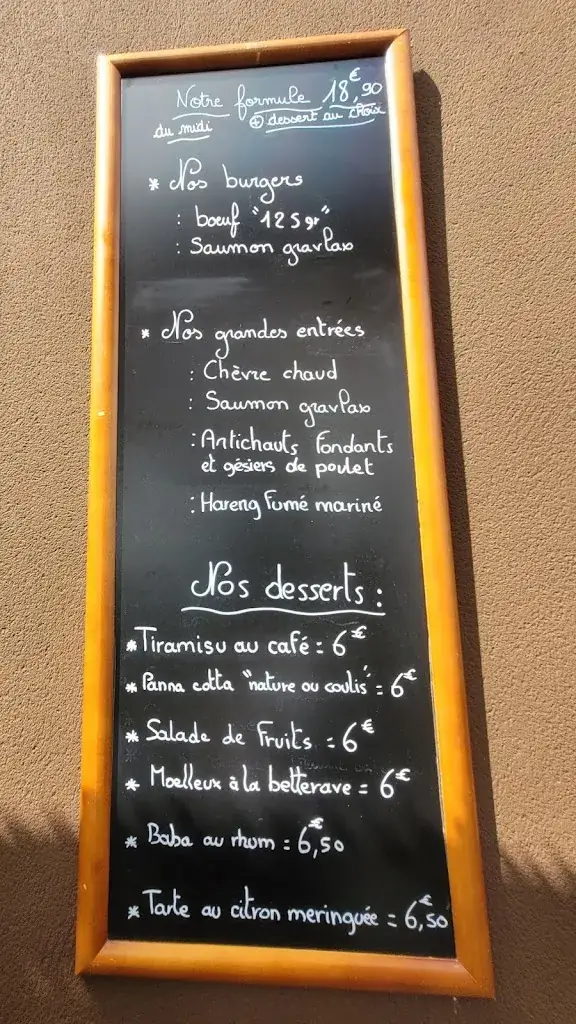 Notre formule 18€,90
du midi ⊕ dessert au choix
* Nos burgers
: bœuf "125gr"
: Saumon gravlax
* Nos grandes entrées
: Chèvre chaud
: Saumon gravlax
: Artichauts fondants
et gésiers de poulet
: Hareng fumé mariné
Nos desserts :
* Tiramisu au café = 6€
* Panna cotta "nature ou coulis" = 6€
* Salade de Fruits = 6€
* Moelleux à la betterave = 6€
* Baba au rhum = 6€,50
* Tarte au citron meringuée = 6€,50